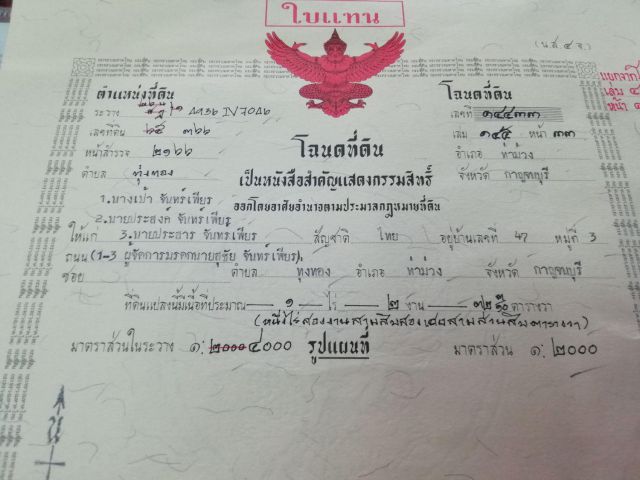 ใบแทน
(น.ส.๔ จ.)
ตำแหน่งที่ดิน
โฉนดที่ดิน
ระวาง 4936 IV 7046
เลขที่ ๑๔๔๓๓
เลขที่ดิน ๓๖๖
โฉนดที่ดิน
เล่ม ๑๔๕ หน้า ๓๓
หน้าสำรวจ ๒๑๖๖
อำเภอ ท่าม่วง
ตำบล ทุ่งทอง
เป็นหนังสือสำคัญแสดงกรรมสิทธิ์
จังหวัด กาญจนบุรี
1.นางเบ้า จันทร์เพียร
ออกโดยอาศัยอำนาจตามประมวลกฎหมายที่ดิน
2.นายประสงค์ จันทร์เพียร
ให้แก่ 3.นายประสาร จันทร์เพียร สัญชาติ ไทย อยู่บ้านเลขที่ 47 หมู่ที่ 3
ถนน (1-3 ผู้จัดการมรดกนายสุชัย จันทร์เพียร)
ซอย ตำบล ทุ่งทอง อำเภอ ท่าม่วง จังหวัด กาญจนบุรี
ที่ดินแปลงนี้มีเนื้อที่ประมาณ ๑ ไร่ ๒ งาน ๓๒ ตารางวา
(หนึ่งไร่สองงานสามสิบสองเศษ ตารางวา)
มาตราส่วนในระวาง ๑: 2000 ๔๐๐๐ รูปแผนที่ มาตราส่วน ๑: ๒๐๐๐